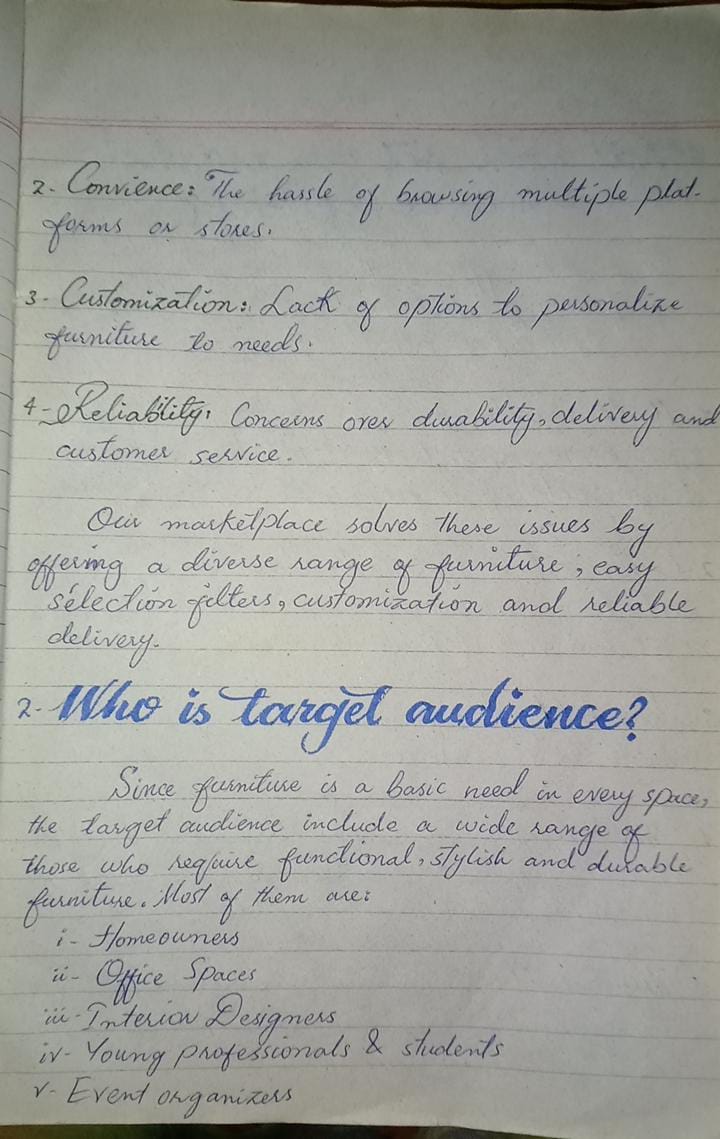 2- Convience: The hassle of browsing multiple plat-
forms or stores.
3- Customization: Lack of options to personalize
furniture to needs.
4- Reliability: Concerns over durability, delivery and
customer service.
Our marketplace solves these issues by
offering a diverse range of furniture, easy
selection filters, customization and reliable
delivery.
2- Who is target audience?
Since furniture is a basic need in every space,
the target audience include a wide range of
those who require functional, stylish and durable
furniture. Most of them are:
i- Homeowners
ii- Office Spaces
iii- Interior Designers
iv- Young professionals & students
v- Event organizers